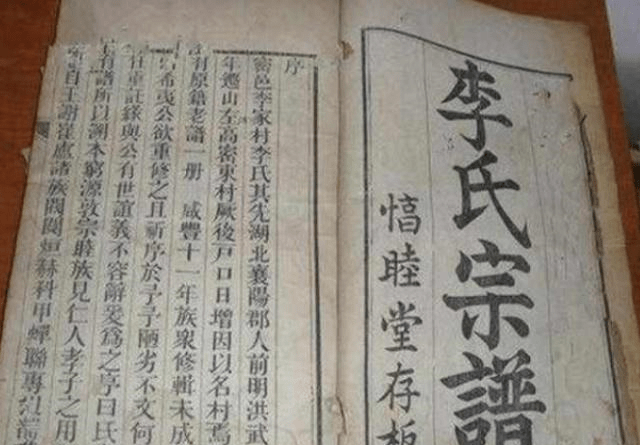 李氏宗譜
惇睦堂存板
序
密邑李家村李氏其先湖北襄陽郡人前明洪武
年遷山左高密東村厥後戶口日增因以名村焉
有原籍老譜一册 咸豐十一年族衆修輯未成
希夷公欲重修之且祈序於予予陋劣不文何
任重託錄與公有世誼義不容辭爰爲之序曰氏
有譜所以溯本窮源敦宗睦族見仁人孝子之用
自王謝崔盧諸族閥閱烜赫科甲蟬聯專